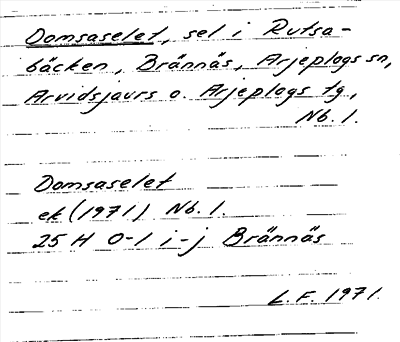 Domsaselet, sel i Rutsa-
bäcken, Brännäs, Arjeplogs sn,
Arvidsjaurs o. Arjeplogs tg,
Nb. l.
Domsaselet
ek (1971) Nb. l.
25 H 0-1 i-j Brännäs
L.F. 1971.